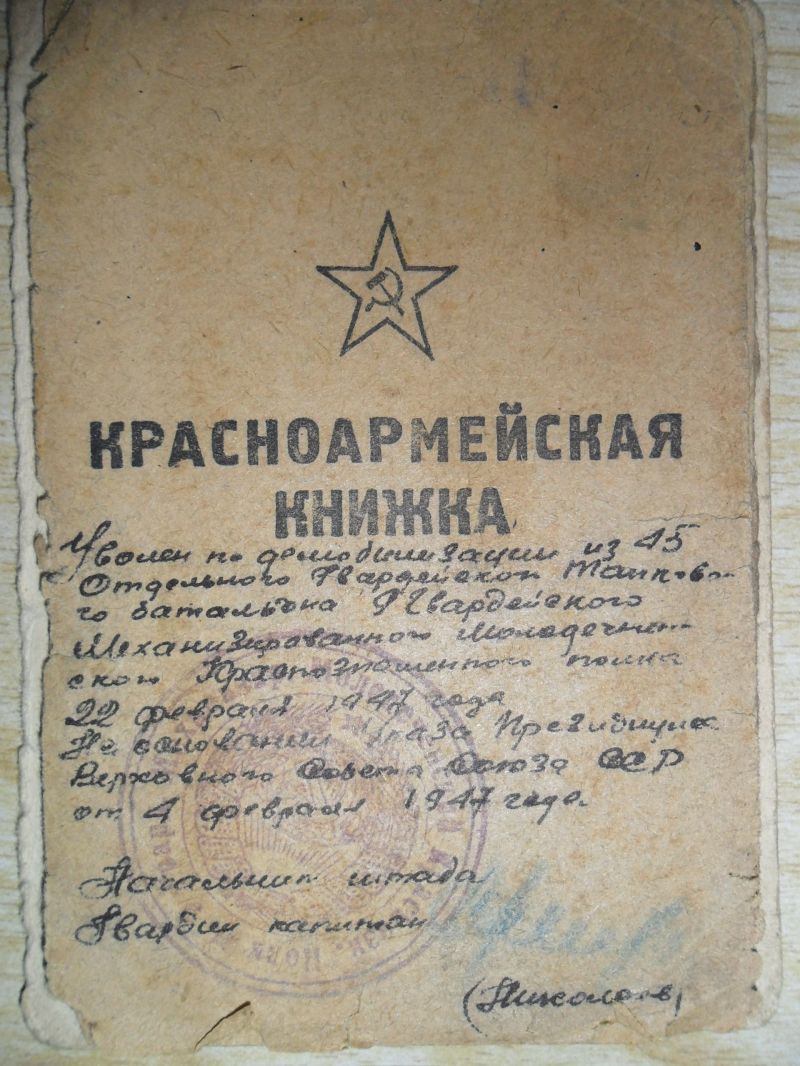 КРАСНОАРМЕЙСКАЯ
КНИЖКА
Уволен по демобилизации из 45
Отдельного Гвардейского Танково-
го батальона Гвардейского
Механизированного Молодечнен-
ского Краснознаменного полка
22 февраля 1947 года
На основании Указа Президиума
Верховного Совета Союза ССР
от 4 февраля 1947 года
Начальник штаба
Гвардии капитан
(Николаев)